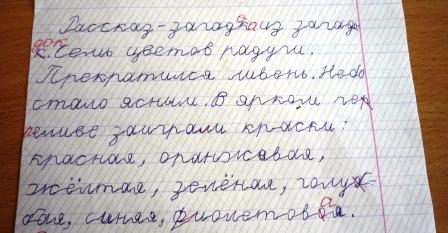 Рассказ-загадка из загадо
к. Семь цветов радуги.
Прекратился ливень. Небо
стало ясным. В ярком
заиграли краски:
красная, оранжавая,
жёлтая, зелёная, голу
бая, синяя, фиолетовая.